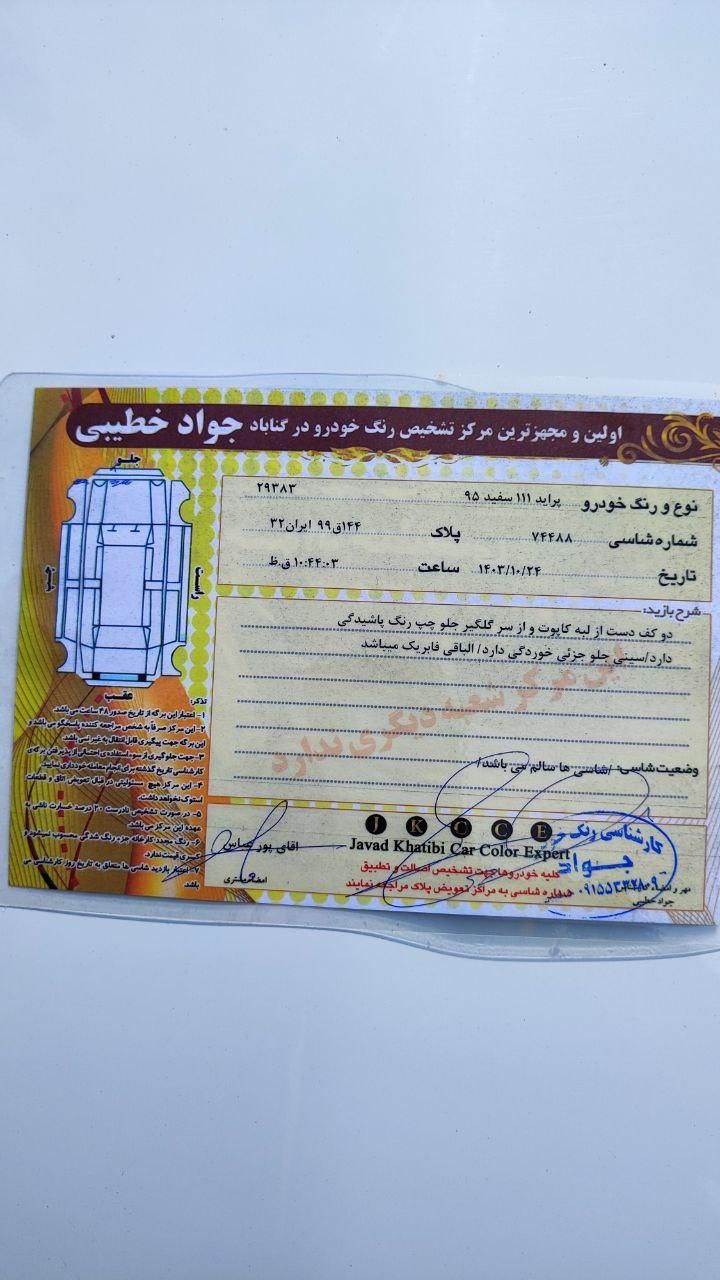 اولین و مجهزترین مرکز تشخیص رنگ خودرو در گناباد جواد خطیبی
جلو
راست
چپ
عقب
نوع و رنگ خودرو پراید ۱۱۱ سفید ۹۵ ۲۹۳۸۳
شماره شاسی ۷۴۴۸۸ پلاک ۱۴۴ق۹۹ ایران۳۲
تاریخ ۱۴۰۳/۱۰/۲۴ ساعت ۱۰:۴۴:۰۳ ق.ظ
شرح بازید:
دو کف دست از لبه کاپوت و از سر گلگیر جلو چپ رنگ پاشیدگی
دارد/سینی جلو جزئی خوردگی دارد/ الباقی فابریک میباشد
این مرکز شعبه دیگری ندارد
وضعیت شاسی: /شاسی ها سالم می باشد/
تذکر:
۱- اعتبار این برگه از تاریخ صدور ۴۸ ساعت می باشد.
۲- این مرکز صرفاً به شخص مراجعه کننده پاسخگو می باشد و
این برگه جهت پیگیری قابل انتقال به غیر نمی باشد.
۳- جهت جلوگیری از سوء استفاده احتمالی از پذیرفتن برگه ی
کارشناسی تاریخ گذشته برای انجام معامله خودداری نمایید.
۴- این مرکز هیچ مسئولیتی در قبال تعویض اتاق و قطعات
استوک نخواهد داشت.
۵- در صورت تشخیص نادرست ۲۰ درصد خسارت ناشی به
عهده این مرکز می باشد.
۶- رنگ مجدد کارخانه جزء رنگ شدگی محسوب نمیشود و
کسری قیمت ندارد.
۷- اعتبار بازدید شاسی ها متعلق به تاریخ روز کارشناسی می
باشد
J K C C E
Javad Khatibi Car Color Expert
کلیه خودروها جهت تشخیص اصالت و تطبیق
شماره شاسی به مراکز تعویض پلاک مراجعه نمایند
آقای پور عباس
امضا مشتری
کارشناسی رنگ خودرو
جواد
جواد خطیبی